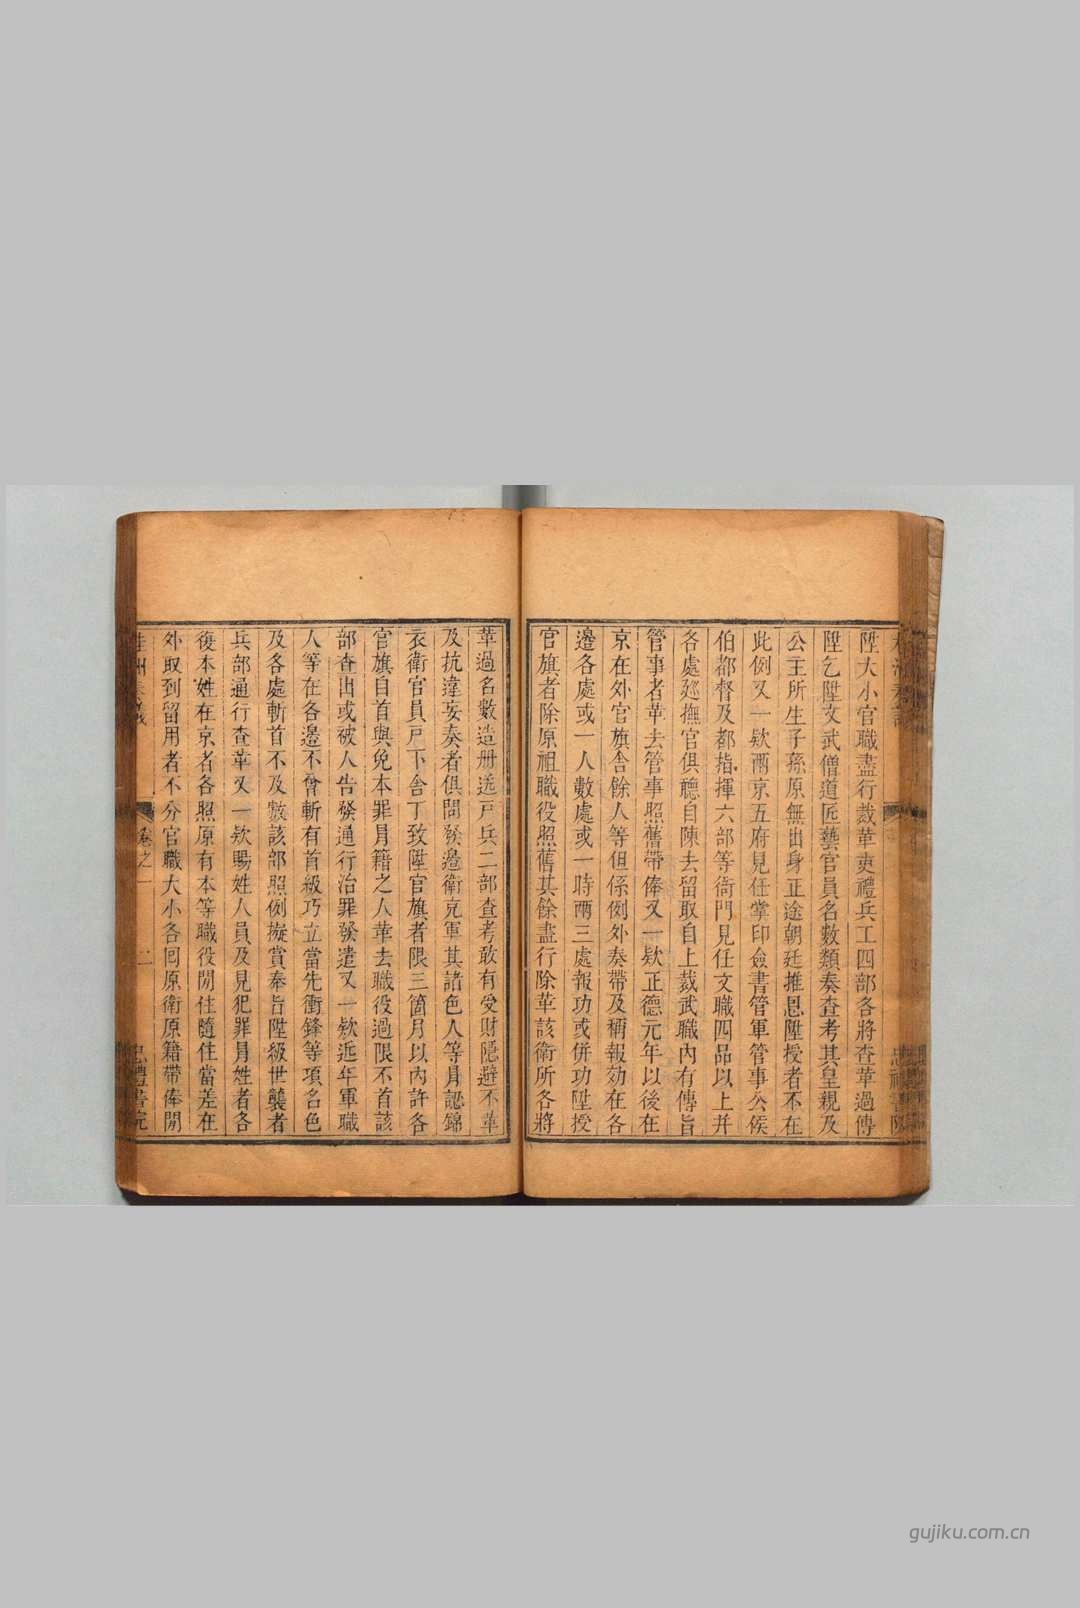 陞大小官職盡行裁革吏禮兵工四部各將查革過傳
陞乞陞文武僧道匠藝官員名數類奏查考其皇親及
公主所生子孫原無出身正途朝廷推恩陞授者不在
此例又一欵兩京五府見任掌印僉書管軍管事公侯
伯都督及都指揮六部等衙門見任文職四品以上并
各處廵撫官俱聽自陳去留取自上裁武職內有傳旨
管事者革去管事照舊帶俸又一欵正德元年以後在
京在外官旗舎餘人等但係例外奏帶及稱報効在各
邊各處或一人數處或一時兩三處報功或併功陞授
官旗者除原祖職役照舊其餘盡行除革該衛所各將
革過名數造册送戸兵二部查考敢有受財隱避不革
及抗違妄奏者俱問發邊衛充軍其諸色人等冐認錦
衣衛官員戸下舎丁致陞官旗者限三箇月以內許各
官旗自首與免本罪冐籍之人革去職役過限不首該
部查出或被人告發通行治罪發遣又一欵近年軍職
人等在各邊不曾斬有首級巧立當先衝鋒等項名色
及各處斬首不及數該部照例擬賞奉旨陞級世襲者
兵部通行查革又一欵賜姓人員及見犯罪冐姓者各
復本姓在京者各照原有本等職役閒住隨住當差在
外取到留用者不分官職大小各回原衛原籍帶俸閒
桂洲奏議
卷之一
二
忠禮書院
gujiku.com.cn